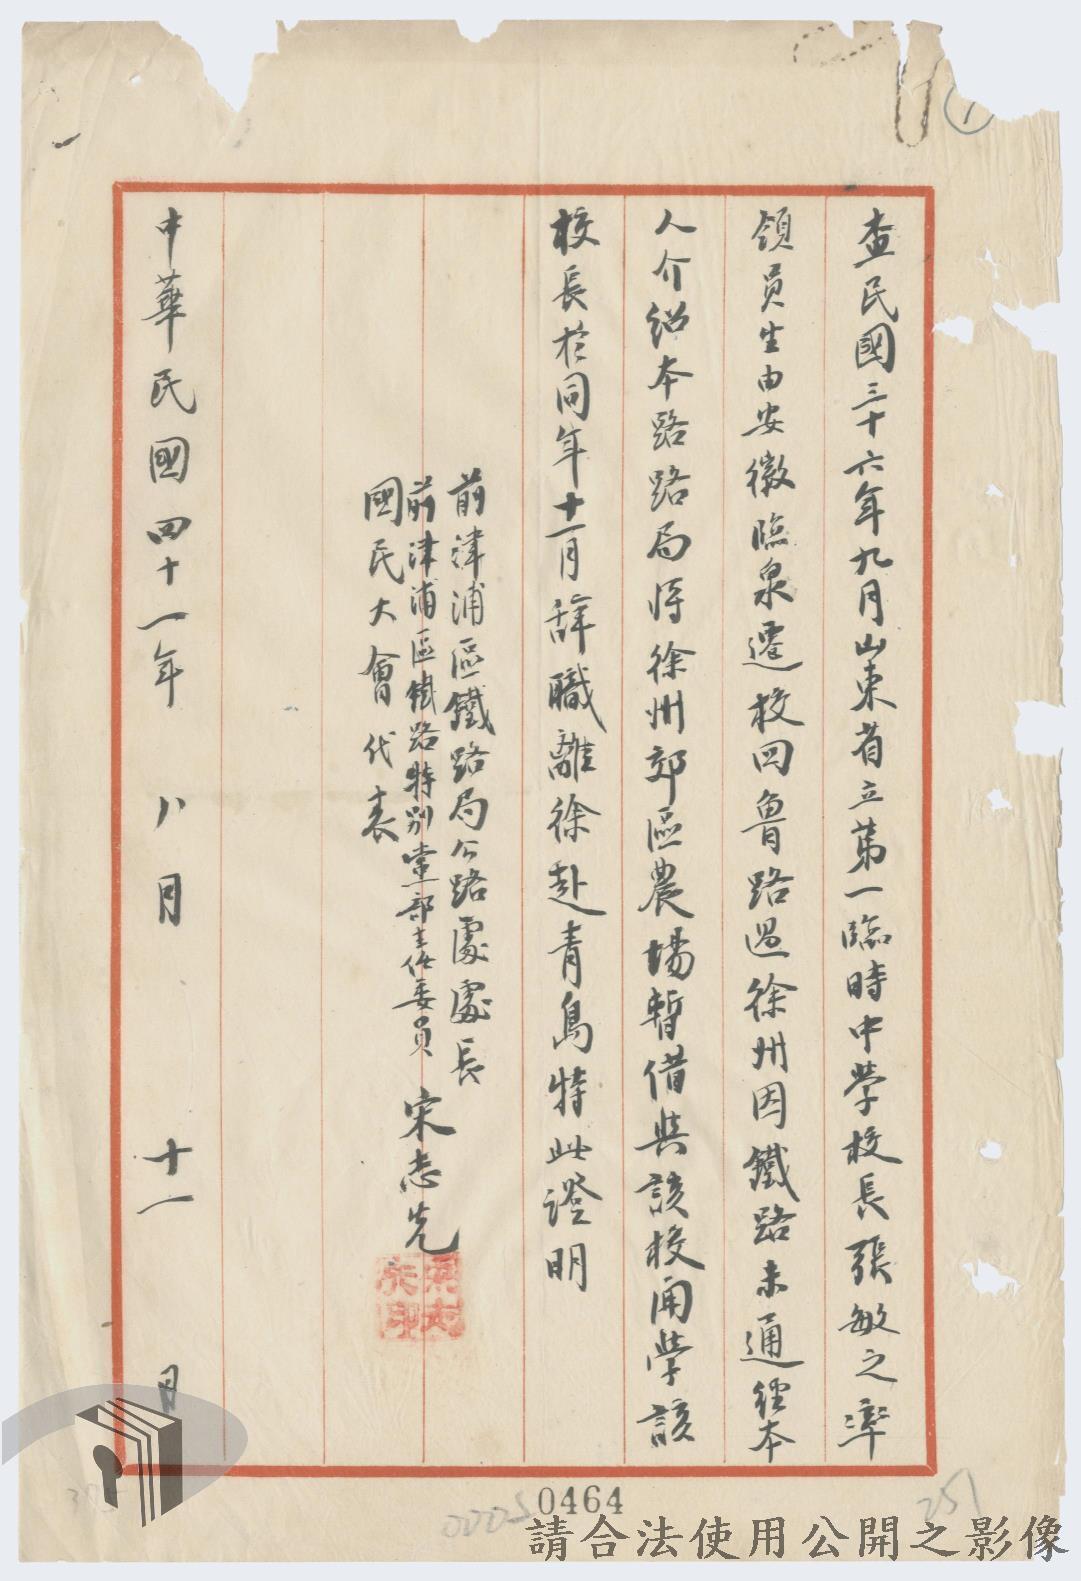 查民國三十六年九月山東省立第一臨時中學校長張敏之率
領員生由安徽臨泉遷校回魯路過徐州因鐵路未通經本
人介紹本路路局將徐州郊區農場暫借與該校開學該
校長於同年十一月辞職離徐赴青島特此證明
前津浦區鐵路局公路處處長
前津浦區鐵路特別黨部主任委員 宋志先
國民大會代表
宋志先印
中華民國四十一年八月十一日
1
0464
00025
251
請合法使用公開之影像